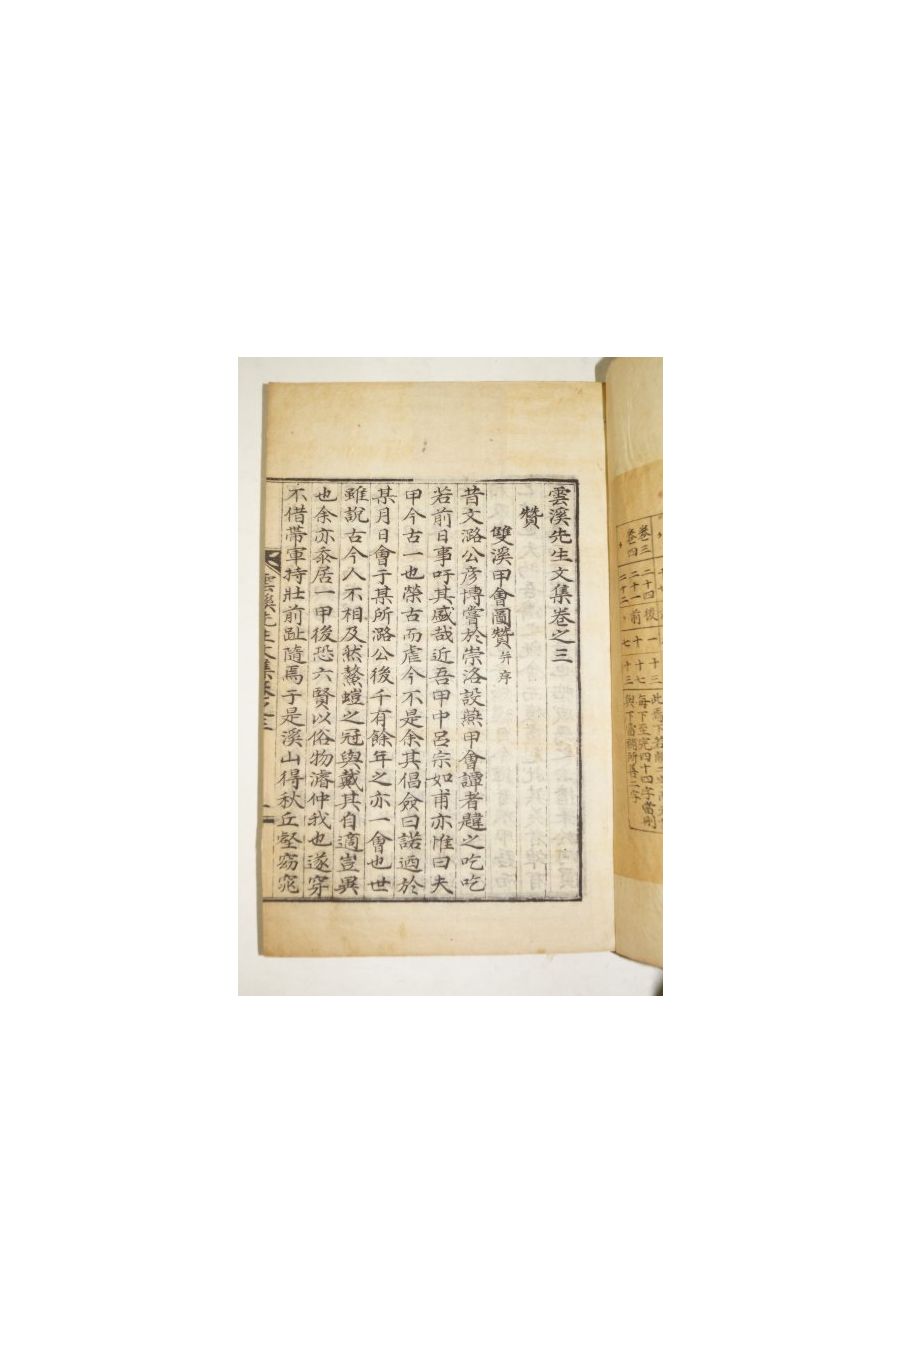 雲溪先生文集卷之三
贊
雙溪甲會圖贊 并序
昔文潞公彦博嘗於崇洛設燕甲會譚者韙之吃吃
若前日事吁其盛哉近吾甲中呂宗如甫亦惟曰夫
甲今古一也榮古而虐今不是余其倡僉曰諾迺於
某月日會于某所潞公後千有餘年之亦一會也世
雖說古今人不相及然鰲螘之冠與戴其自適豈異
也余亦忝居一甲後恐六賢以俗物濬仲我也遂穿
不借帶軍持壯前趾隨焉于是溪山得秋丘壑窈窕
雲溪先生文集卷之三 一
卷三 二十四 後 一 十三
卷四 二十一 前 十 十七 每下至完四十四字當刪
二十二 七 十三 與下當補所善二字